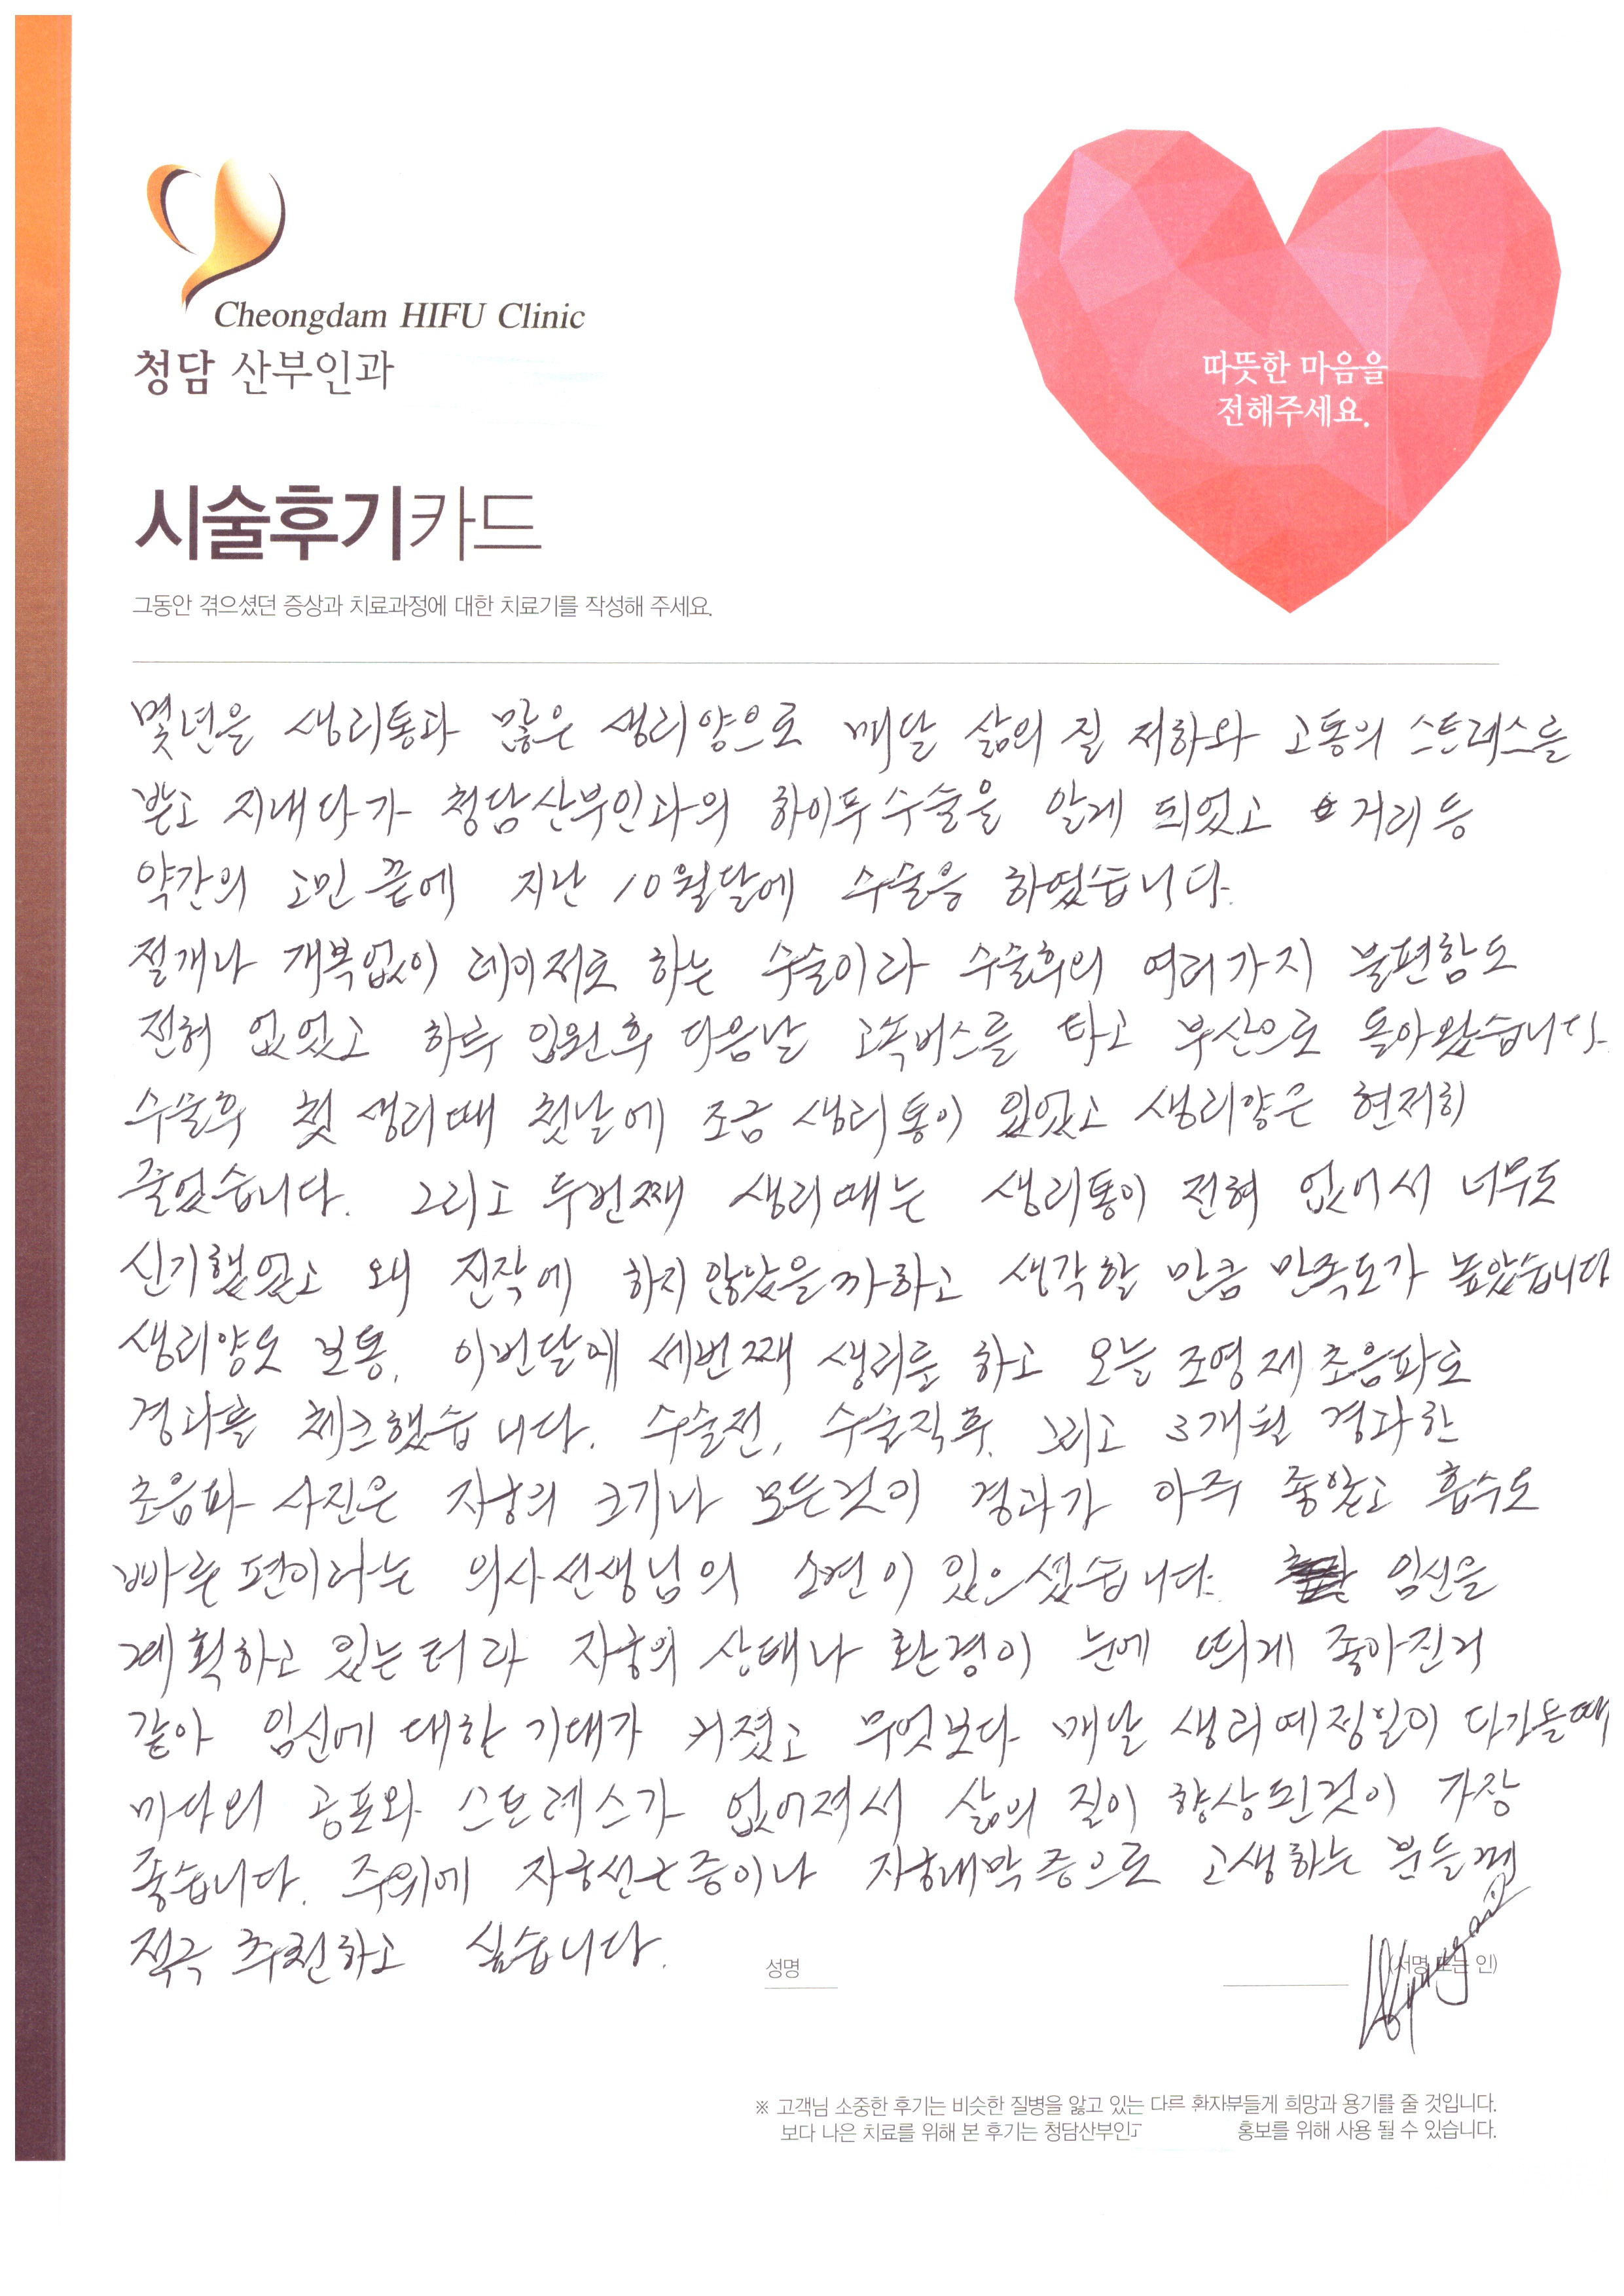 Cheongdam HIFU Clinic
청담 산부인과
따뜻한 마음을
전해주세요.
시술후기카드
그동안 겪으셨던 증상과 치료과정에 대한 치료기를 작성해 주세요.
몇년을 생리통과 많은 생리양으로 매달 삶의 질 저하와 고통의 스트레스를
받고 지내다가 청담산부인과의 하이푸수술을 알게 되었고 거리등
약간의 고민 끝에 지난 10월달에 수술을 하였습니다.
절개나 개복없이 레이저로 하는 수술이라 수술후의 여러가지 불편함도
전혀 없었고 하루 입원후 다음날 고속버스를 타고 부산으로 돌아왔습니다.
수술후 첫 생리때 첫날에 조금 생리통이 있었고 생리양은 현저히
줄었습니다. 그리고 두번째 생리때는 생리통이 전혀 없어서 너무도
신기했었고 왜 진작에 하지 않았을까하고 생각할 만큼 만족도가 높았습니다
생리양도 보통. 이번달에 세번째 생리를 하고 오늘 조영제 초음파로
경과를 체크했습니다. 수술전, 수술직후, 그리고 3개월 경과한
초음파 사진은 자궁의 크기나 모든것이 경과가 아주 좋았고 흡수도
빠른 편이라는 의사선생님의 소견이 있으셨습니다. 임신을
계획하고 있는터라 자궁의 상태나 환경이 눈에 띄게 좋아진거
같아 임신에 대한 기대가 커졌고 무엇보다 매달 생리예정일이 다가올때
마다의 공포와 스트레스가 없어져서 삶의 질이 향상된것이 가장
좋습니다. 주위에 자궁선근증이나 자궁내막증으로 고생하는 분들께
적극 추천하고 싶습니다.
성명
(서명 또는 인)
※ 고객님 소중한 후기는 비슷한 질병을 앓고 있는 다른 환자부들게 희망과 용기를 줄 것입니다.
보다 나은 치료를 위해 본 후기는 청담산부인 홍보를 위해 사용 될 수 있습니다.